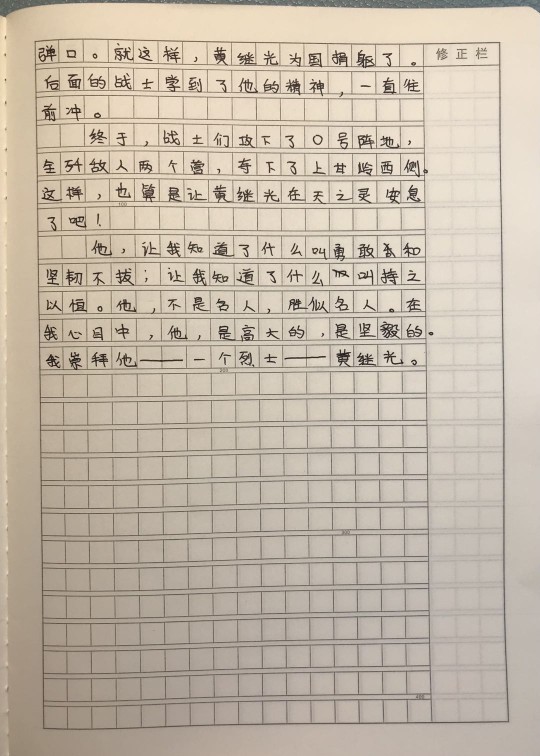 弹口。就这样，黄继光为国捐躯了。
修正栏
后面的战士学到了他的精神，一直往
前冲。
终于，战士们攻下了0号阵地，
全歼敌人两个营，夺下了上甘岭西侧。
这样，也算是让黄继光在天之灵安息
100
了吧！
他，让我知道了什么叫勇敢和
坚韧不拔；让我知道了什么叫持之
以恒。他，不是名人，胜似名人。在
我心目中，他，是高大的，是坚毅的。
我崇拜他——一个烈士——黄继光。
200
300
400